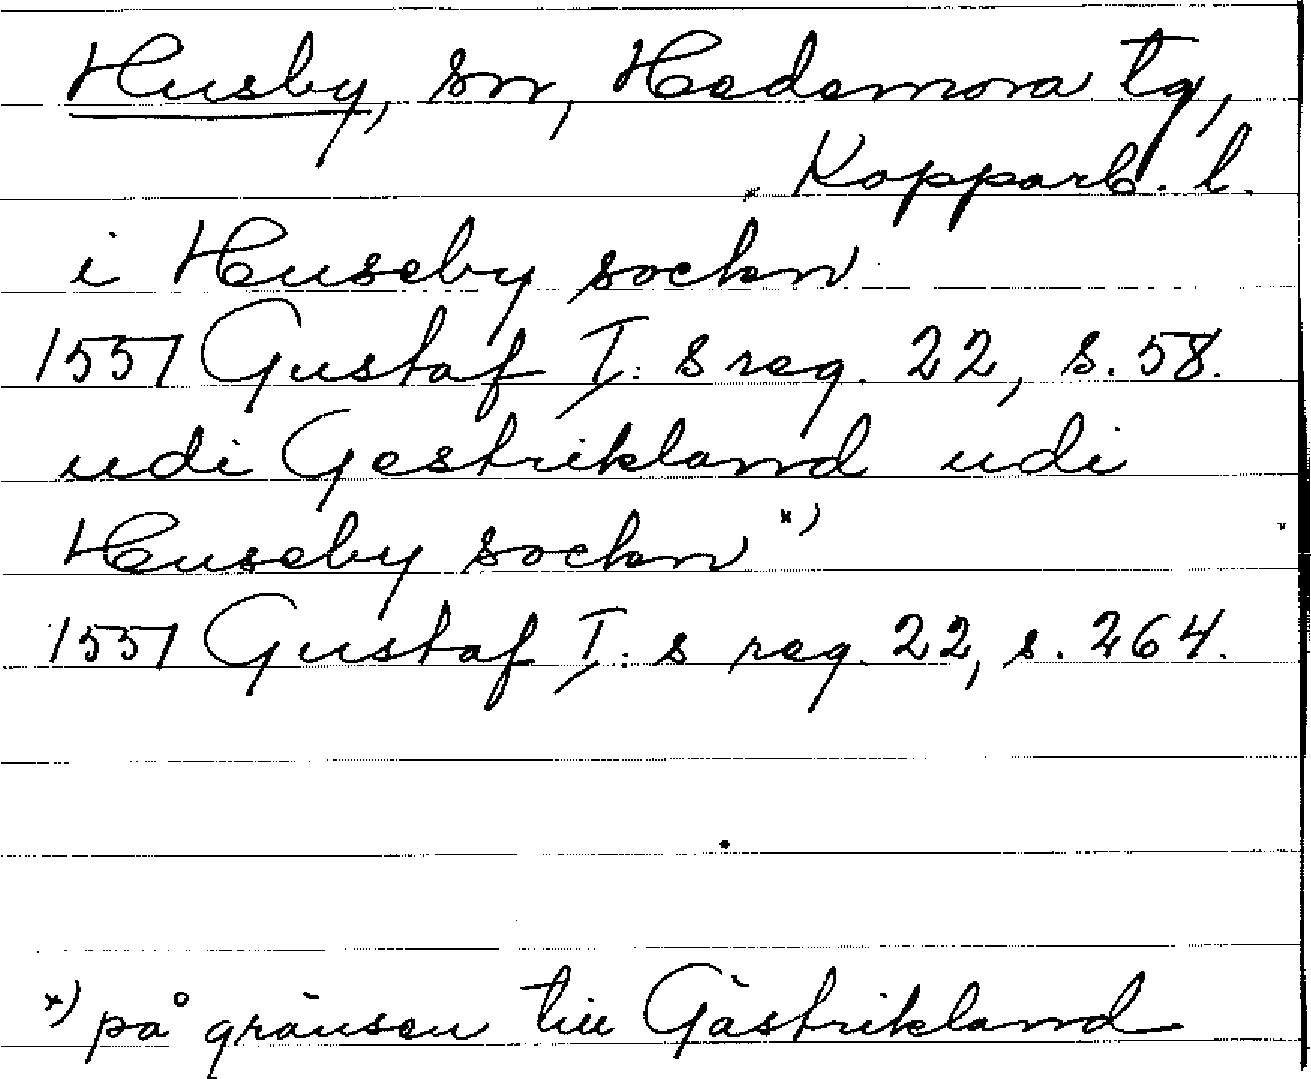 Husby, sn, Hedemora tg,
Kopparb. l.
i Huseby sockn
1551 Gustaf I:s reg. 22, s. 58.
udi Gestrikland udi
Huseby sockn x)
1551 Gustaf I:s reg. 22, s. 264.
x) på gränsen till Gästrikland